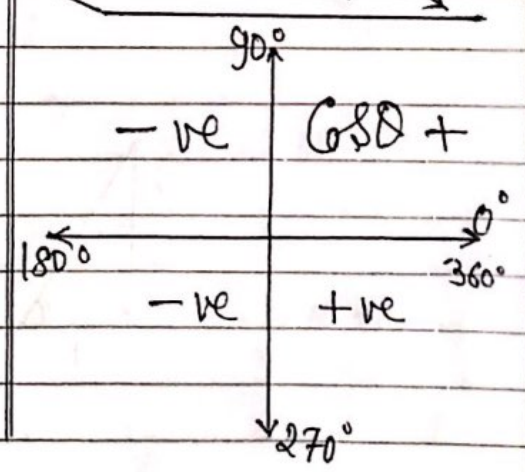 90°
-ve Cosθ +
0°
180° 360°
-ve +ve
270°